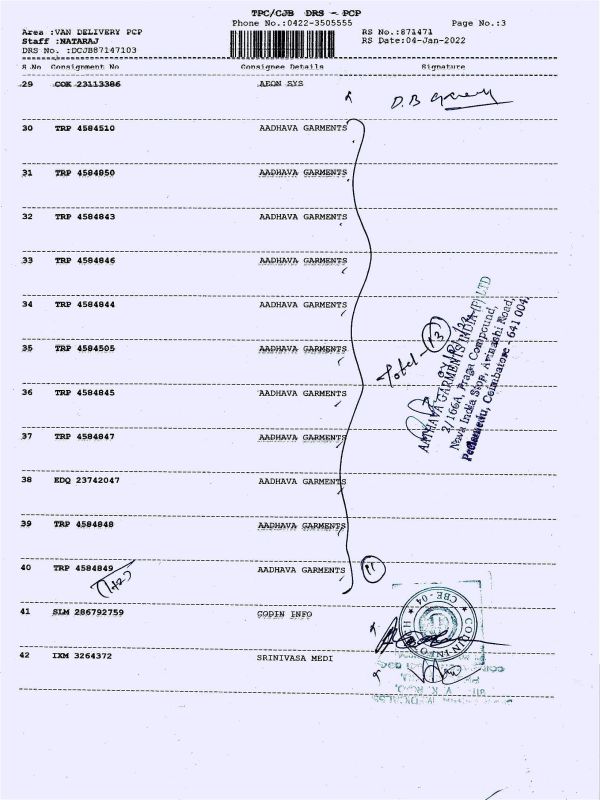 TPC/CJB DRS - PCP
Phone No.:0422-3505555 Page No.:3
Area :VAN DELIVERY PCP RS No.:871471
Staff :NATARAJ RS Date:04-Jan-2022
DRS No. :DCJB87147103
S.No Consignment No Consignee Details Signature
29 COK 23113386 AEON SYS
30 TRP 4584510 AADHAVA GARMENTS
31 TRP 4584850 AADHAVA GARMENTS
32 TRP 4584843 AADHAVA GARMENTS
33 TRP 4584846 AADHAVA GARMENTS
34 TRP 4584844 AADHAVA GARMENTS
35 TRP 4584505 AADHAVA GARMENTS
36 TRP 4584845 AADHAVA GARMENTS
37 TRP 4584847 AADHAVA GARMENTS
38 EDQ 23742047 AADHAVA GARMENTS
39 TRP 4584848 AADHAVA GARMENTS
40 TRP 4584849 AADHAVA GARMENTS
11
Total - 13
AADHAVA GARMENTS INDIA (P) LTD
2/166A, Praga Compound,
Nava India Stop, Avinashi Road,
Peelamedu, Coimbatore - 641 004.
41 SLM 286792759 CODIN INFO
CODIN-INFO
CBE - 04
42 IXM 3264372 SRINIVASA MEDI